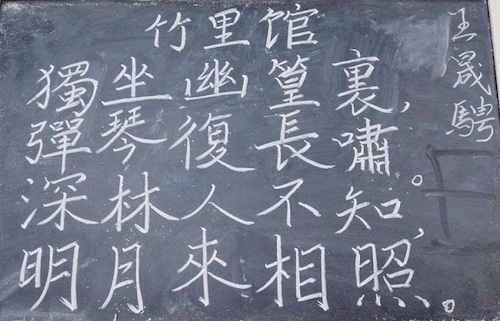 竹里馆
獨坐幽篁裏，
彈琴復長嘯。
深林人不知，
明月來相照。
王晟騁